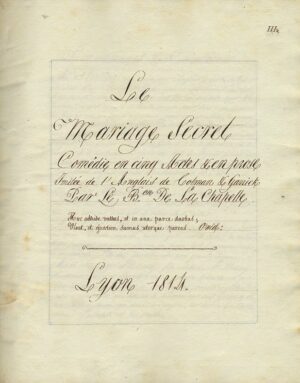 III.
Le
Mariage Secret
Comédie en cinq Actes & en prose
Imitée de l'Anglais de Colman & Garrick
Par Le Bon De La Chapelle
Huc adhibe vultus, et in una parce duobus;
Vivat, et ejusdem simus uterque parens. Ovid:
Lyon 1814.